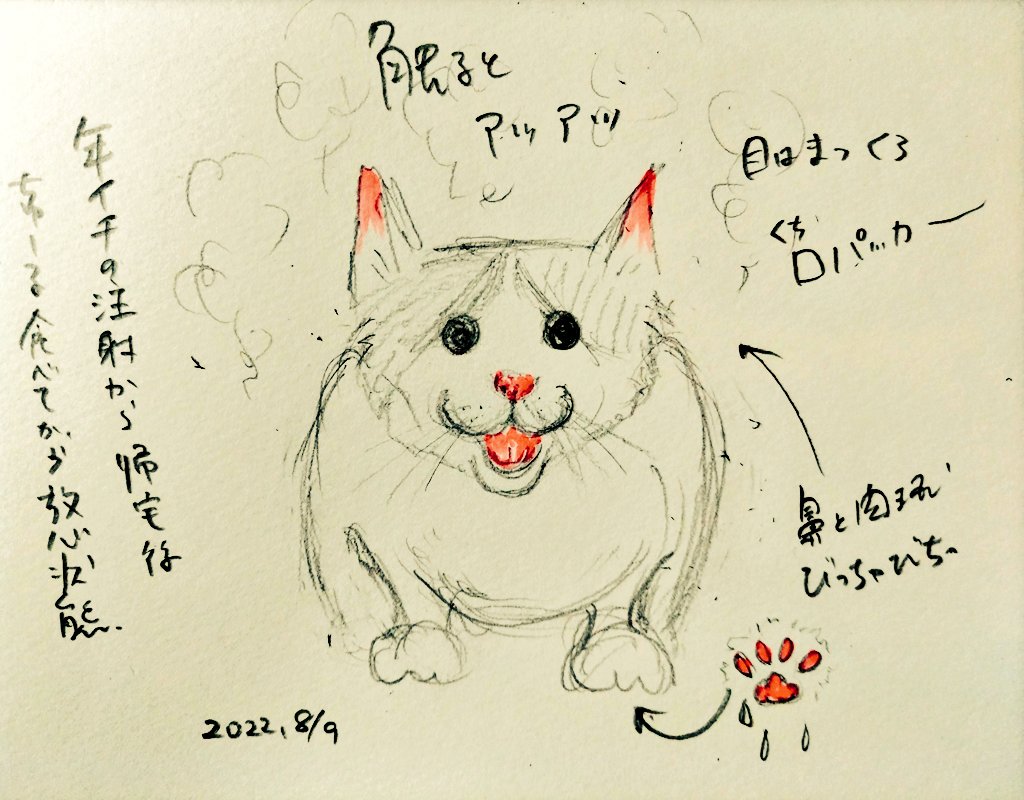 触ると
アツアツ
目はまっくろ
くち
口パッカー
年イチの注射から帰宅後
ちゅーる食べてから放心状態.
鼻と肉球
びっちゃびちゃ
2022.8/9